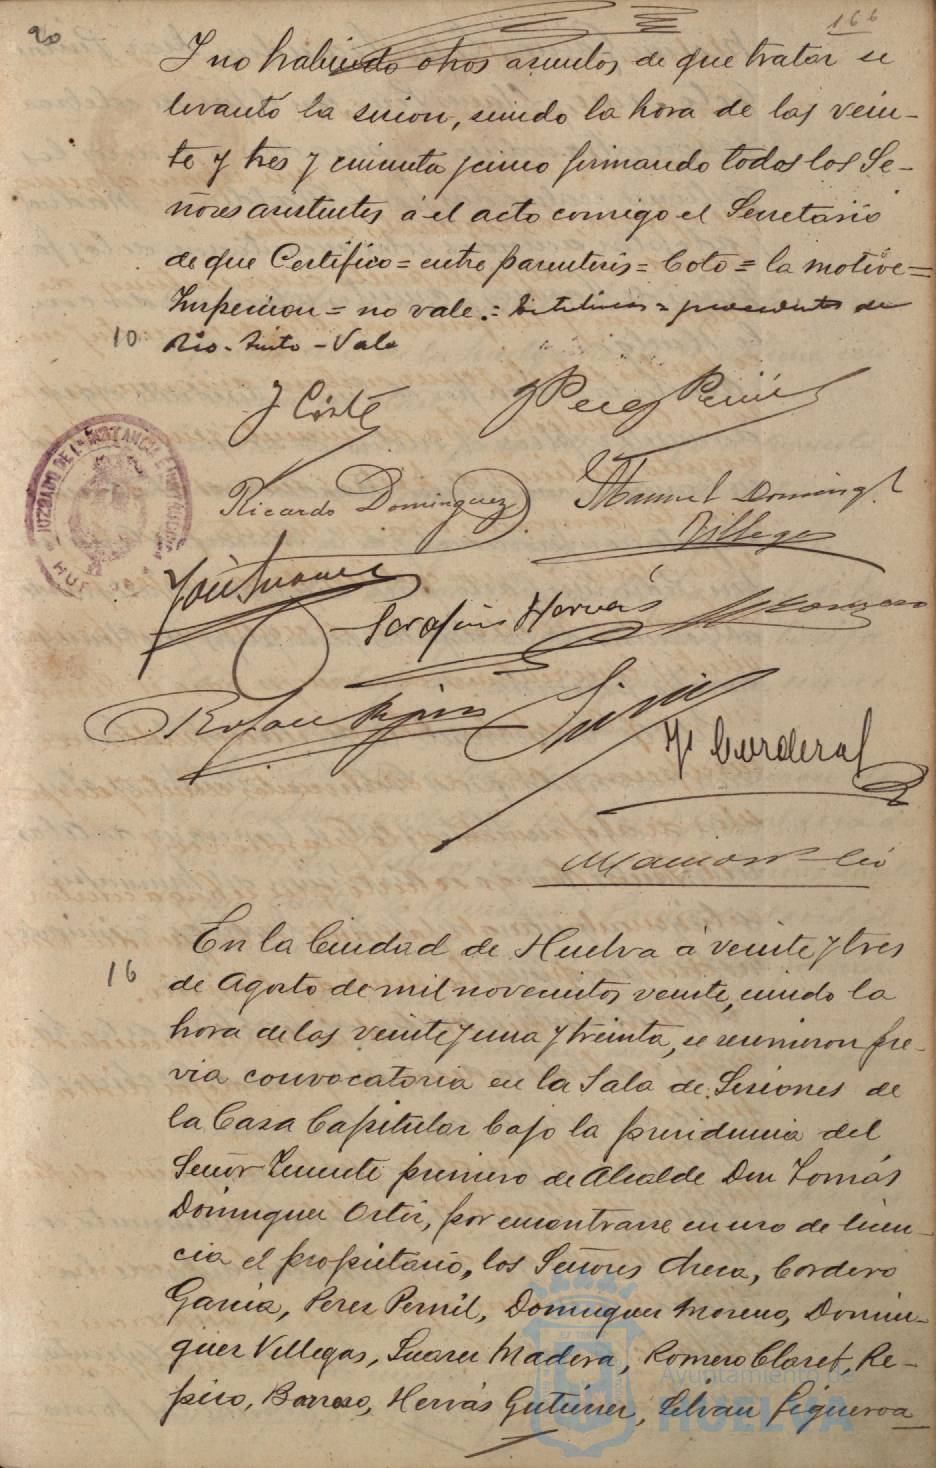 20
166
Y no habiendo otros asuntos de que tratar se
levantó la sesion, siendo la hora de las vein-
te y tres y cincuenta y cinco firmando todos los Se-
ñores asistentes á el acto conmigo el Secretario
de que Certifico = entre parentesis = Coto = la motive =
Inspeccion = no vale. = = procedente de
10
Rio-Tinto - Vale
Perez Pernil
Ricardo Dominguez
Manuel Doming
Villegas
JUZGADO DE 1ª INSTANCIA E INSTRUCCION
HUELVA
José Suarez
Serafin Hervás
Rafael
Cordero
En la Ciudad de Huelva á veinte y tres
16
de Agosto de mil novecientos veinte, siendo la
hora de las veinte y una y treinta, se reunieron pre-
via convocatoria en la Sala de Sesiones de
la Casa Capitular bajo la presidencia del
Señor Teniente primero de Alcalde Don Tomás
Dominguez Ortiz, por encontrarse en uso de licen-
cia el propietario, los Señores Checa, Cordero
Garcia, Perez Pernil, Dominguez Moreno, Domin-
guez Villegas, Suarez Madera, Romero Claret, Re-
piso, Barroso, Hervás Gutierrez, Silvan Figueroa
Ayuntamiento de
HUELVA